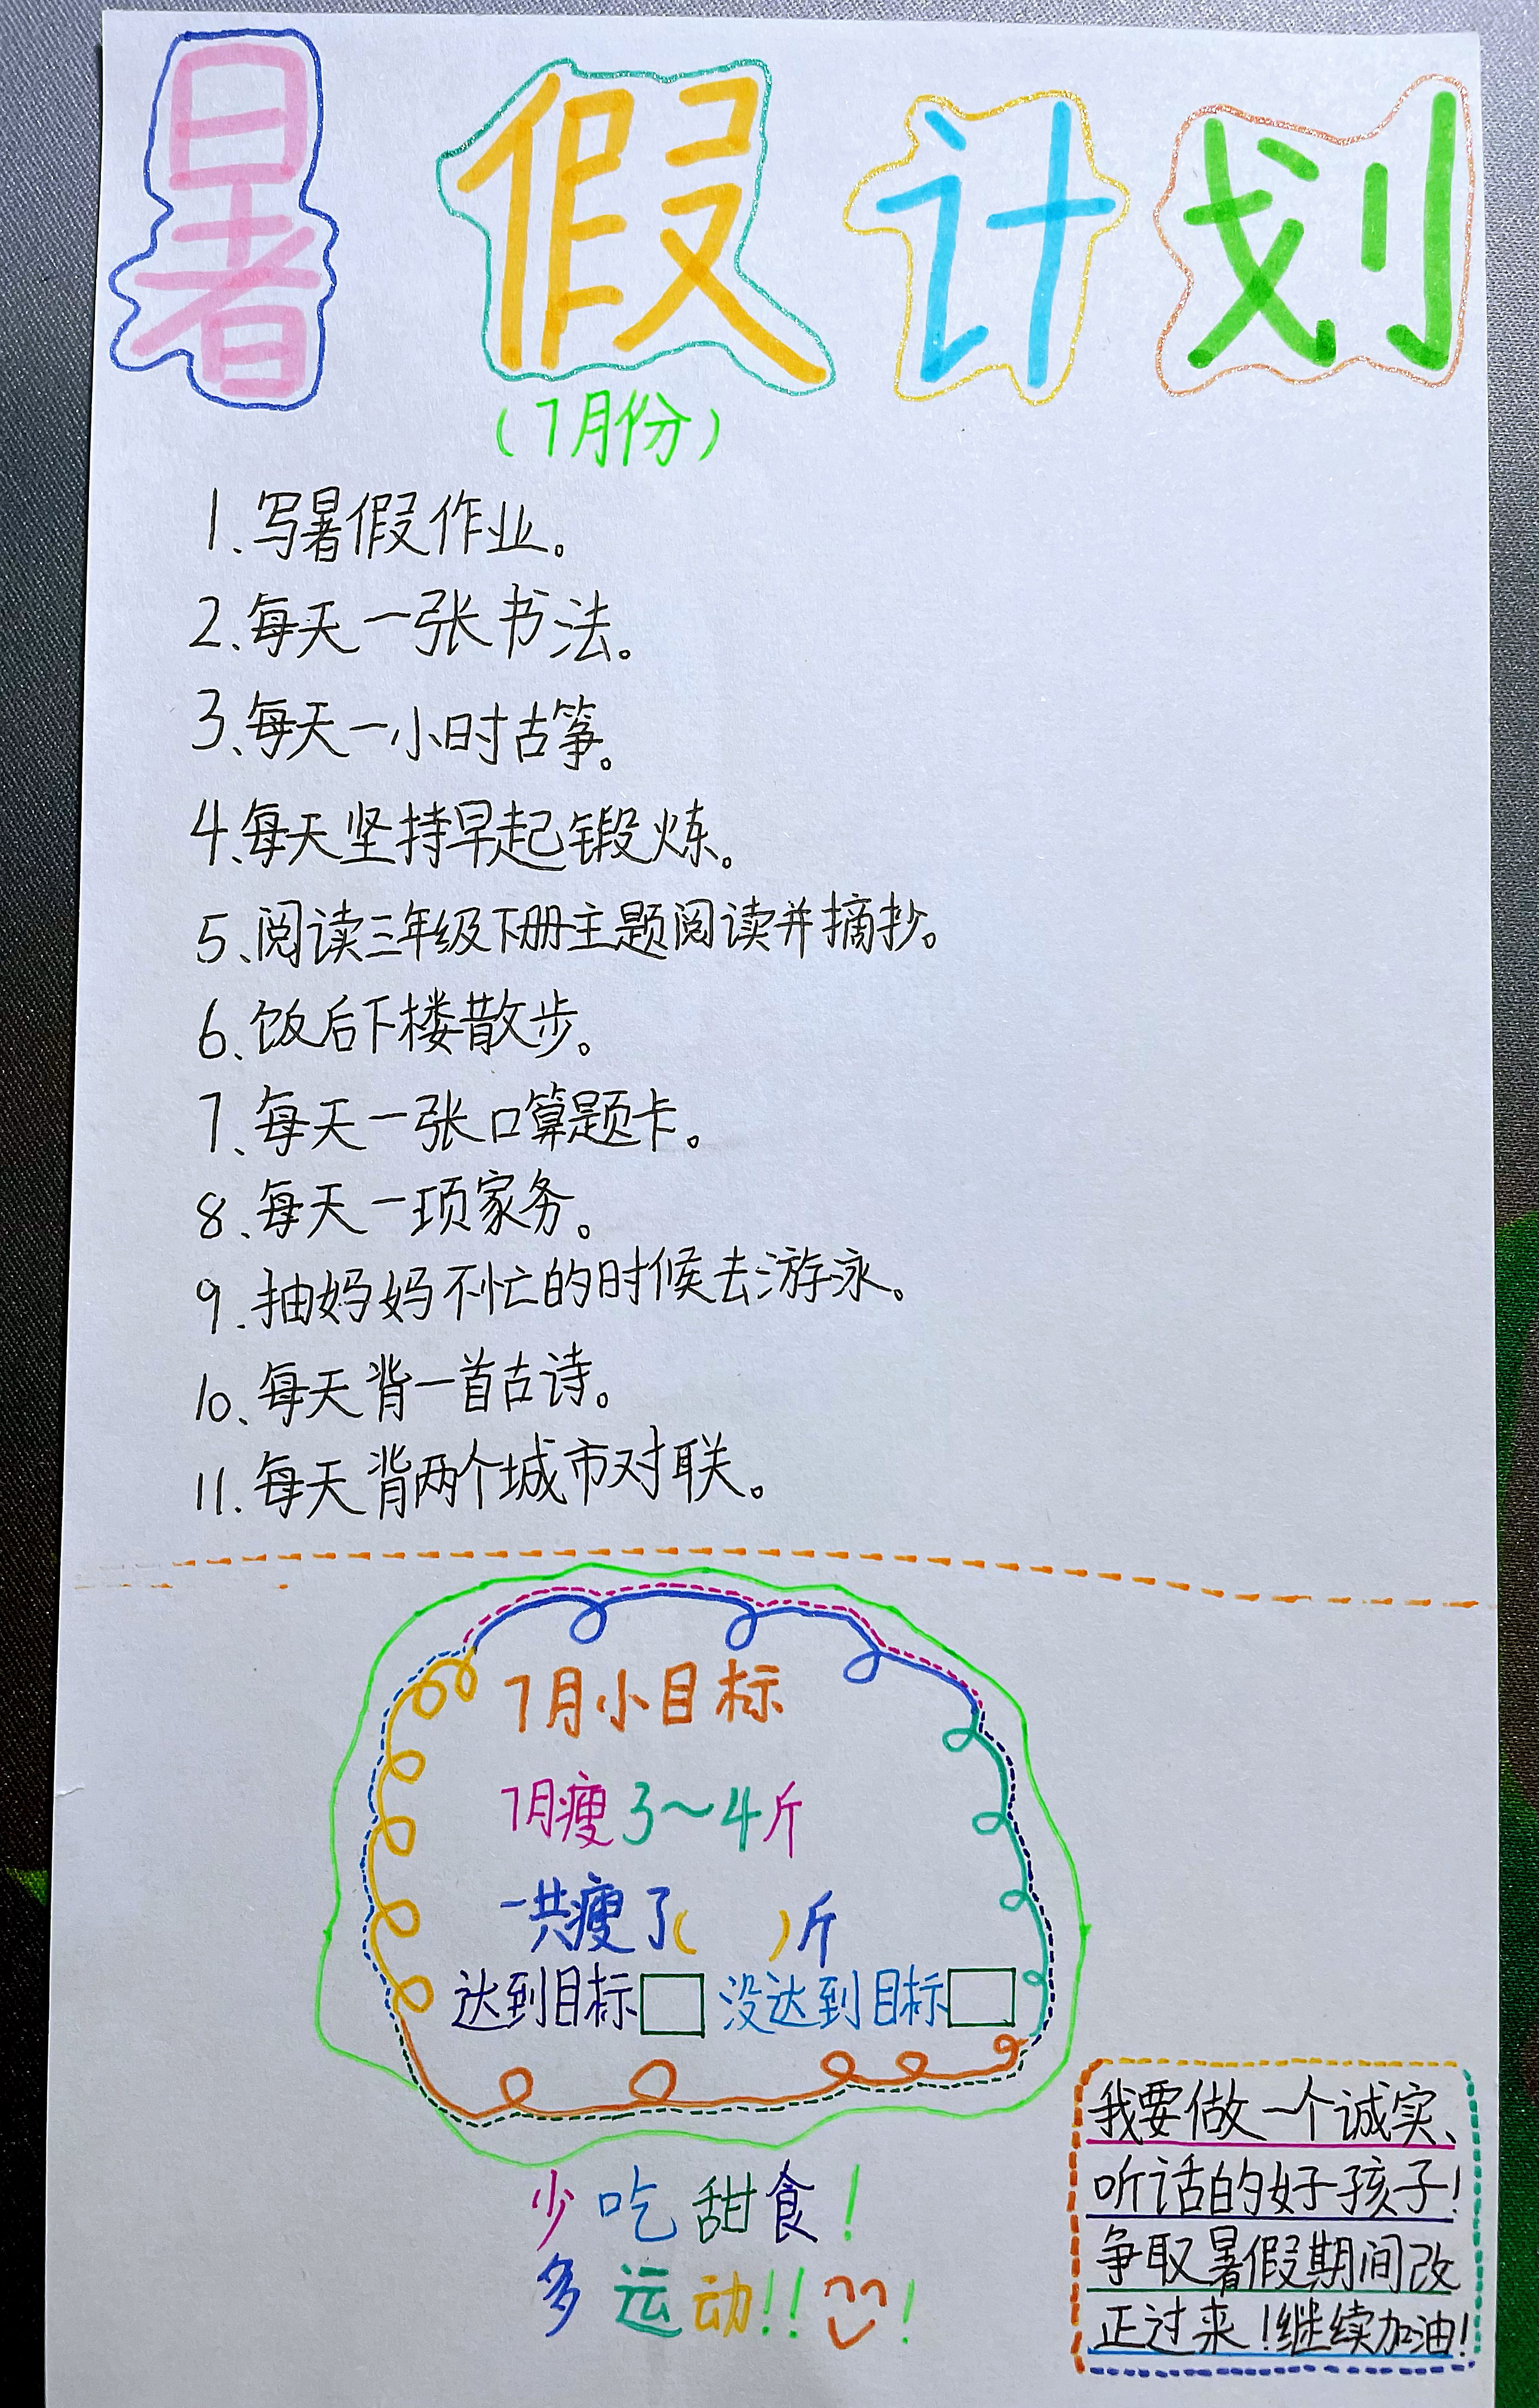 暑假计划
(7月份)
1、写暑假作业。
2、每天一张书法。
3、每天一小时古筝。
4、每天坚持早起锻炼。
5、阅读三年级下册主题阅读并摘抄。
6、饭后下楼散步。
7、每天一张口算题卡。
8、每天一项家务。
9、抽妈妈不忙的时候去游泳。
10、每天背一首古诗。
11、每天背两个城市对联。
7月小目标
7月瘦3~4斤
一共瘦了( )斤
达到目标 没达到目标
少吃甜食!
多运动!!!
我要做一个诚实、
听话的好孩子!
争取暑假期间改
正过来!继续加油!